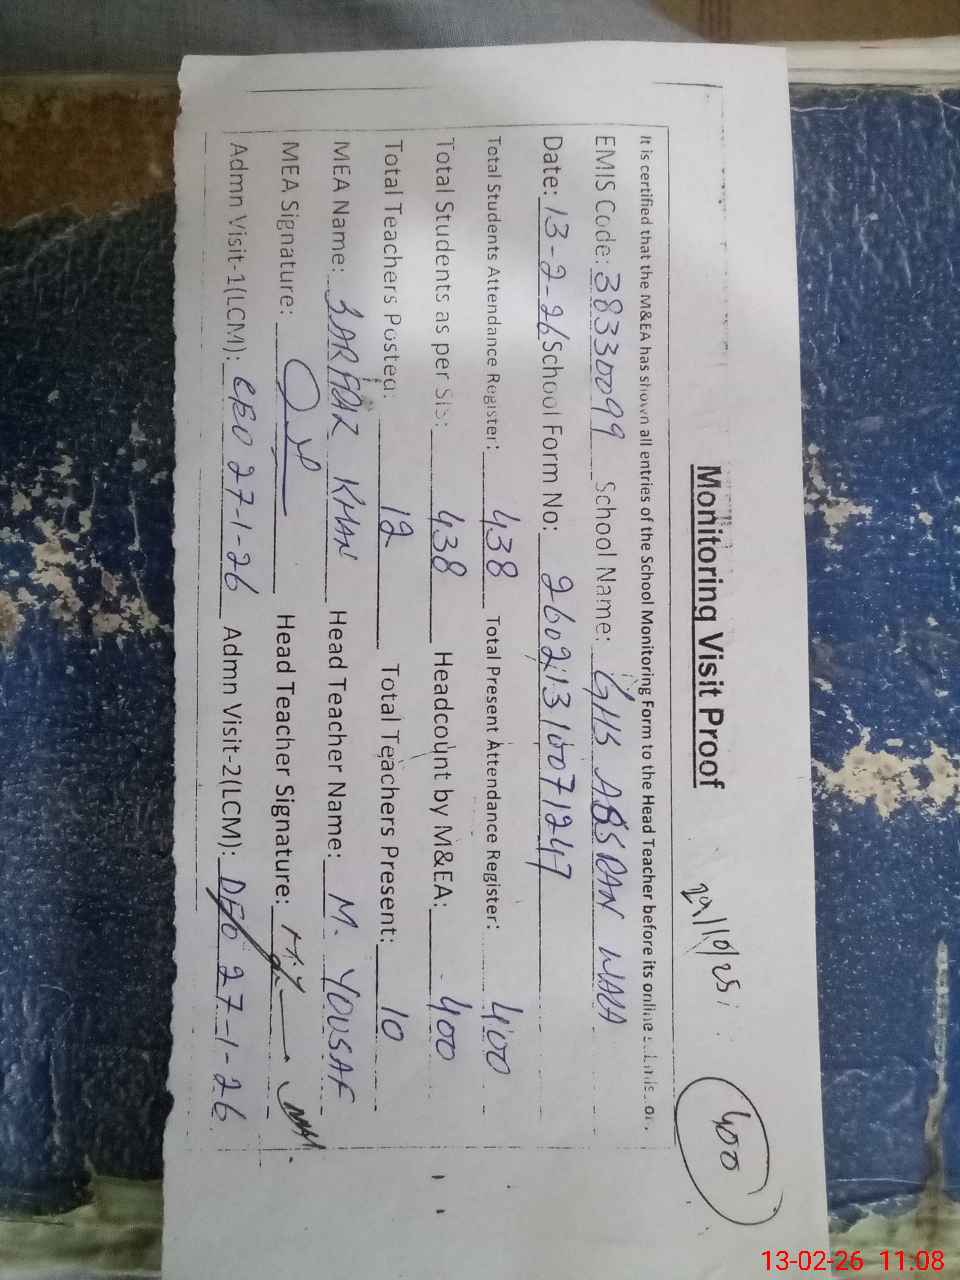 Monitoring Visit Proof
400
It is certified that the M&EA has shown all entries of the School Monitoring Form to the Head Teacher before its online
EMIS Code: 38330099 School Name: GHS ABSDAN WALA
Date: 13-2-26 School Form No: 26021310071247
Total Students Attendance Register: 438 Total Present Attendance Register: 400
Total Students as per SIS: 438 Headcount by M&EA: 400
Total Teachers Posted: 12 Total Teachers Present: 10
MEA Name: SARFRAZ KHAN Head Teacher Name: M. YOUSAF
MEA Signature: Head Teacher Signature:
Admn Visit-1(LCM): CEO 27-1-26 Admn Visit-2(LCM): DEO 27-1-26
13-02-26 11:08